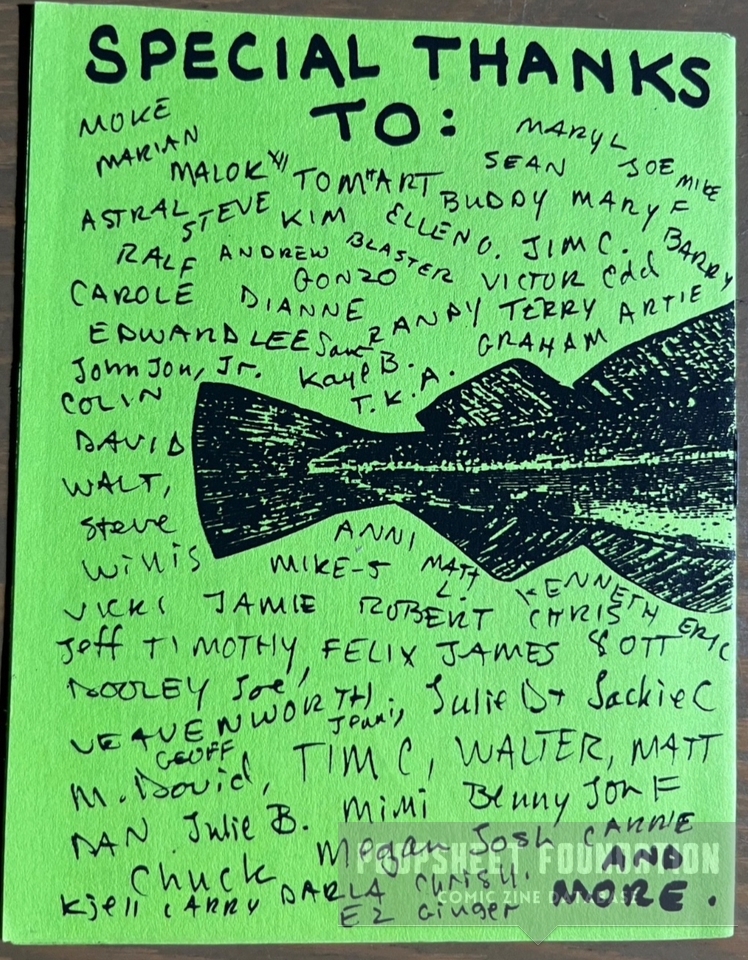 SPECIAL THANKS
TO:
MOKE
MARYL
MARIAN
MALOK XII TOM"ART SEAN JOE MIKE
ASTRAL STEVE KIM ELLEN O. BUDDY MARY F
RALF ANDREW BLASTER JIM C. BARRY
GONZO VICTOR Edd
CAROLE DIANNE RANDY TERRY ARTIE
EDWARD LEE Sam GRAHAM
John Jon, Jr. Kaye B.
COLIN T.K.A.
DAVID
WALT,
Steve
Willis ANNI
MIKE-S MATT L. KENNETH
VICKI JAMIE ROBERT CHRIS ERIC
Jeff TIMOTHY, FELIX JAMES
DOOLEY Joe,
LEAVENWORTH Julie D+ Jackie C
GEOFF
M. David, TIM C, WALTER, MATT
DAN Julie B. Mimi Benny Jon F
Chuck Megan Josh CARRIE
Kjell LARRY DARLA Chris H.
EZ Ginger
AND
MORE.
POOPSHEET FOUNDATION
COMIC ZINE DATABASE